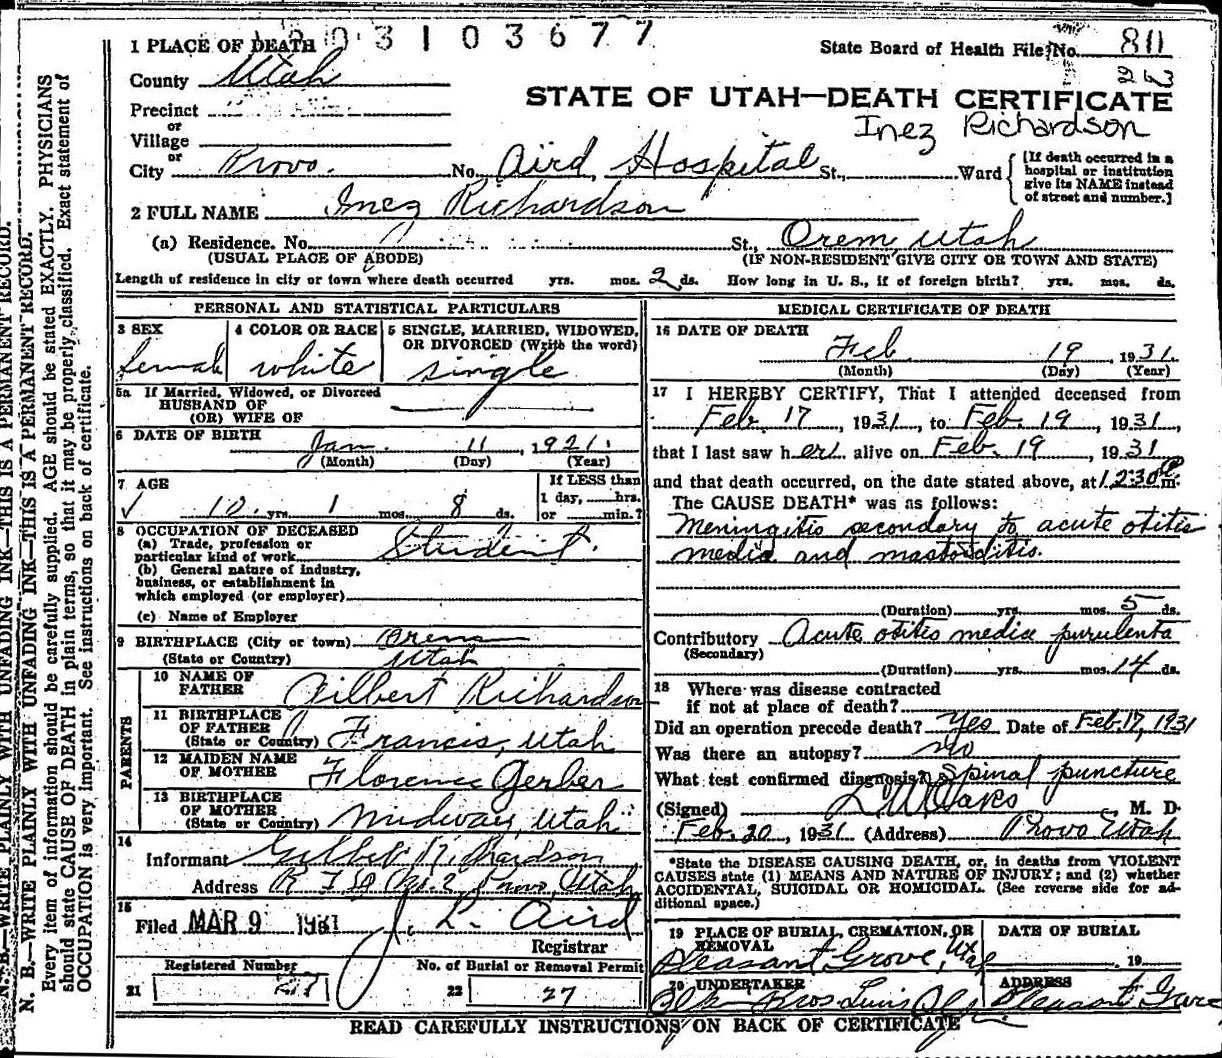 3 1 0 3 6 7 7
1 PLACE OF DEATH
State Board of Health File No. 80
County Utah
263
Precinct
STATE OF UTAH—DEATH CERTIFICATE
or
Village
Inez Richardson
or
City Provo. No. Aird Hospital St., Ward
[If death occurred in a hospital or institution give its NAME instead of street and number.]
2 FULL NAME Inez Richardson
(a) Residence. No. St., Orem, Utah
(USUAL PLACE OF ABODE) (IF NON-RESIDENT GIVE CITY OR TOWN AND STATE)
Length of residence in city or town where death occurred yrs. mos. 2 ds. How long in U. S., if of foreign birth? yrs. mos. ds.
PERSONAL AND STATISTICAL PARTICULARS
3 SEX
female
4 COLOR OR RACE
white
5 SINGLE, MARRIED, WIDOWED,
OR DIVORCED (Write the word)
single
5a If Married, Widowed, or Divorced
HUSBAND OF
(OR) WIFE OF
6 DATE OF BIRTH
Jan. 11, 1921.
(Month) (Day) (Year)
7 AGE
If LESS than
1 day, hrs.
or min.?
10 yrs. 1 mos. 8 ds.
8 OCCUPATION OF DECEASED
(a) Trade, profession or
particular kind of work Student.
(b) General nature of industry,
business, or establishment in
which employed (or employer)
(c) Name of Employer
9 BIRTHPLACE (City or town) Orem
(State or Country) Utah
PARENTS
10 NAME OF
FATHER Gilbert Richardson
11 BIRTHPLACE
OF FATHER
(State or Country) Francis, Utah
12 MAIDEN NAME
OF MOTHER Florence Gerber
13 BIRTHPLACE
OF MOTHER
(State or Country) Midway, Utah
14
Informant Gilbert Richardson
Address R F D No. 2, Provo, Utah
15
Filed MAR 9 1931 J. L. Aird
Registrar
Registered Number
21 27
No. of Burial or Removal Permit
22 27
MEDICAL CERTIFICATE OF DEATH
16 DATE OF DEATH
Feb 19, 1931.
(Month) (Day) (Year)
17 I HEREBY CERTIFY, That I attended deceased from
Feb. 17, 1931, to Feb. 19, 1931,
that I last saw h er alive on Feb. 19, 1931
and that death occurred, on the date stated above, at 12:30 P m.
The CAUSE DEATH* was as follows:
Meningitis secondary to acute otitis
media and mastoiditis.
(Duration) yrs. mos. 5 ds.
Contributory Acute otitis media purulenta
(Secondary)
(Duration) yrs. mos. 14 ds.
18 Where was disease contracted
if not at place of death?
Did an operation precede death? Yes Date of Feb. 17, 1931
Was there an autopsy? no
What test confirmed diagnosis? Spinal puncture
(Signed) L W Oaks M. D.
Feb. 20, 1931 (Address) Provo Utah
*State the DISEASE CAUSING DEATH, or, in deaths from VIOLENT
CAUSES state (1) MEANS AND NATURE OF INJURY; and (2) whether
ACCIDENTAL, SUICIDAL OR HOMICIDAL. (See reverse side for ad-
ditional space.)
19 PLACE OF BURIAL, CREMATION, OR
REMOVAL
Pleasant Grove, Utah
DATE OF BURIAL
19
20 UNDERTAKER
Bros
ADDRESS
Pleasant Grove
READ CAREFULLY INSTRUCTIONS ON BACK OF CERTIFICATE
N. B.—WRITE PLAINLY WITH UNFADING INK—THIS IS A PERMANENT RECORD.
N. B.—WRITE PLAINLY WITH UNFADING INK—THIS IS A PERMANENT RECORD.
Every item of information should be carefully supplied. AGE should be stated EXACTLY. PHYSICIANS
should state CAUSE OF DEATH in plain terms, so that it may be properly classified. Exact statement of
OCCUPATION is very important. See instructions on back of certificate.